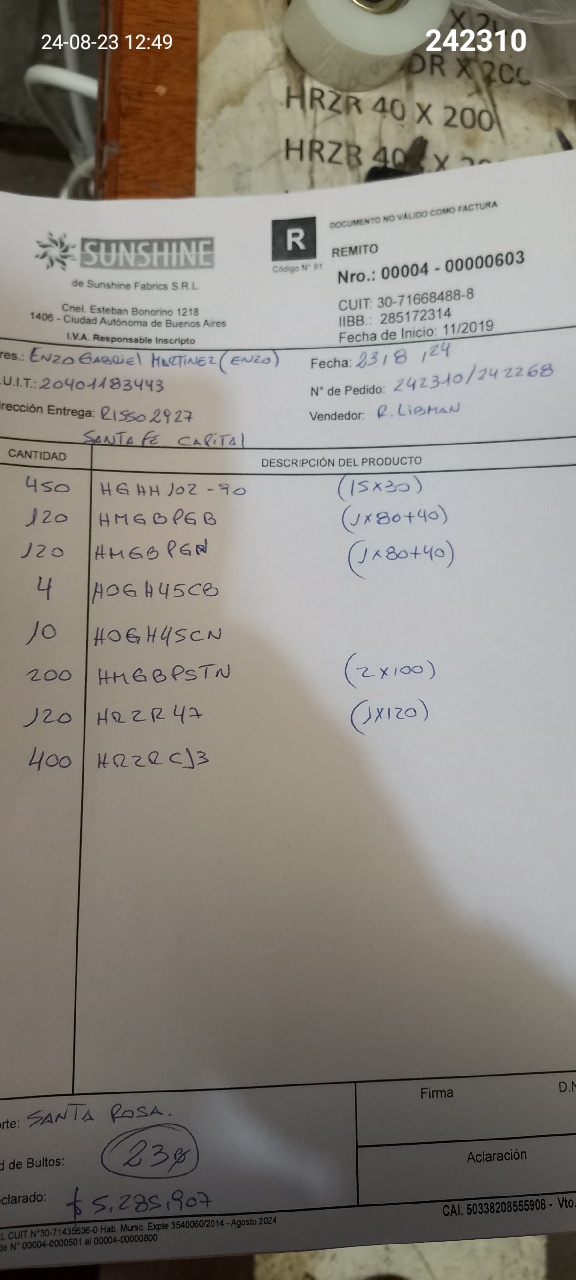 24-08-23 12:49
242310
X 20
DR X 200
HRZR 40 X 200
HRZR 40 X
SUNSHINE
de Sunshine Fabrics S.R.L.
Cnel. Esteban Bonorino 1218
1406 - Ciudad Autónoma de Buenos Aires
I.V.A. Responsable Inscripto
R
Código N° 91
DOCUMENTO NO VÁLIDO COMO FACTURA
REMITO
Nro.: 00004 - 00000603
CUIT: 30-71668488-8
IIBB.: 285172314
Fecha de Inicio: 11/2019
res.: ENZO GABRIEL MARTINEZ (ENZO)
Fecha: 23/8/24
.U.I.T.: 20401183443
N° de Pedido: 242310/242268
rección Entrega: RISSO 2927
Vendedor: R. LIBMAN
SANTA FE CAPITAL
CANTIDAD DESCRIPCIÓN DEL PRODUCTO
450 HGHH102-90 (15X30)
120 HMGBPGB (1X80+40)
120 HMGBPGN (1X80+40)
4 HOGH45CB
10 HOGH45CN
200 HMGBPSTN (2X100)
120 HRZR47 (1X120)
400 HRZRC13
rte: SANTA ROSA.
Firma D.N
d de Bultos: 23
Aclaración
clarado: $ 5,285,907
L CUIT N°30-71435636-0 Hab. Munic. Expte 3540060/2014 - Agosto 2024
de N° 00004-0000501 al 00004-00000800
CAI. 50338208555908 - Vto.